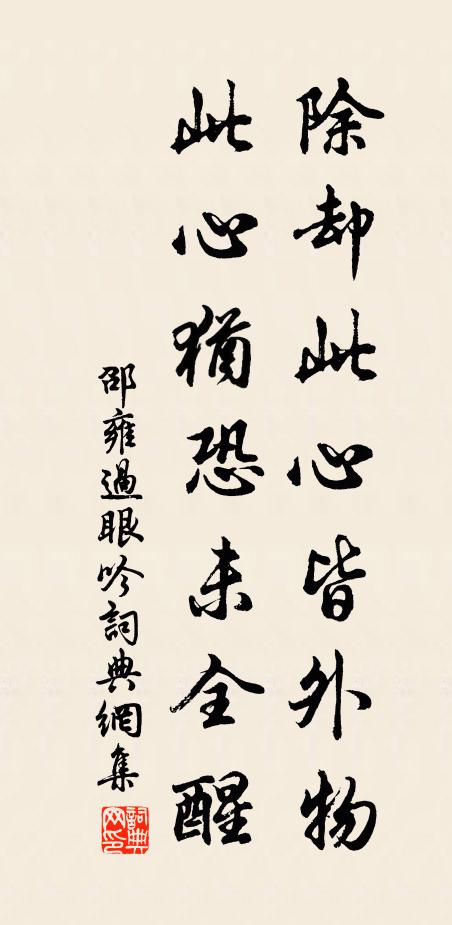 除却此心皆外物
此心猶恐未全醒
邵雍過眼吟詞典網集
詞典
网印